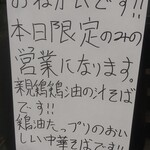 おねがいです!!
本日限定のみの
営業になります。
親鶏鶏油の汁そば
です!!
鶏油たっプリのおい
しい中華そばです!!